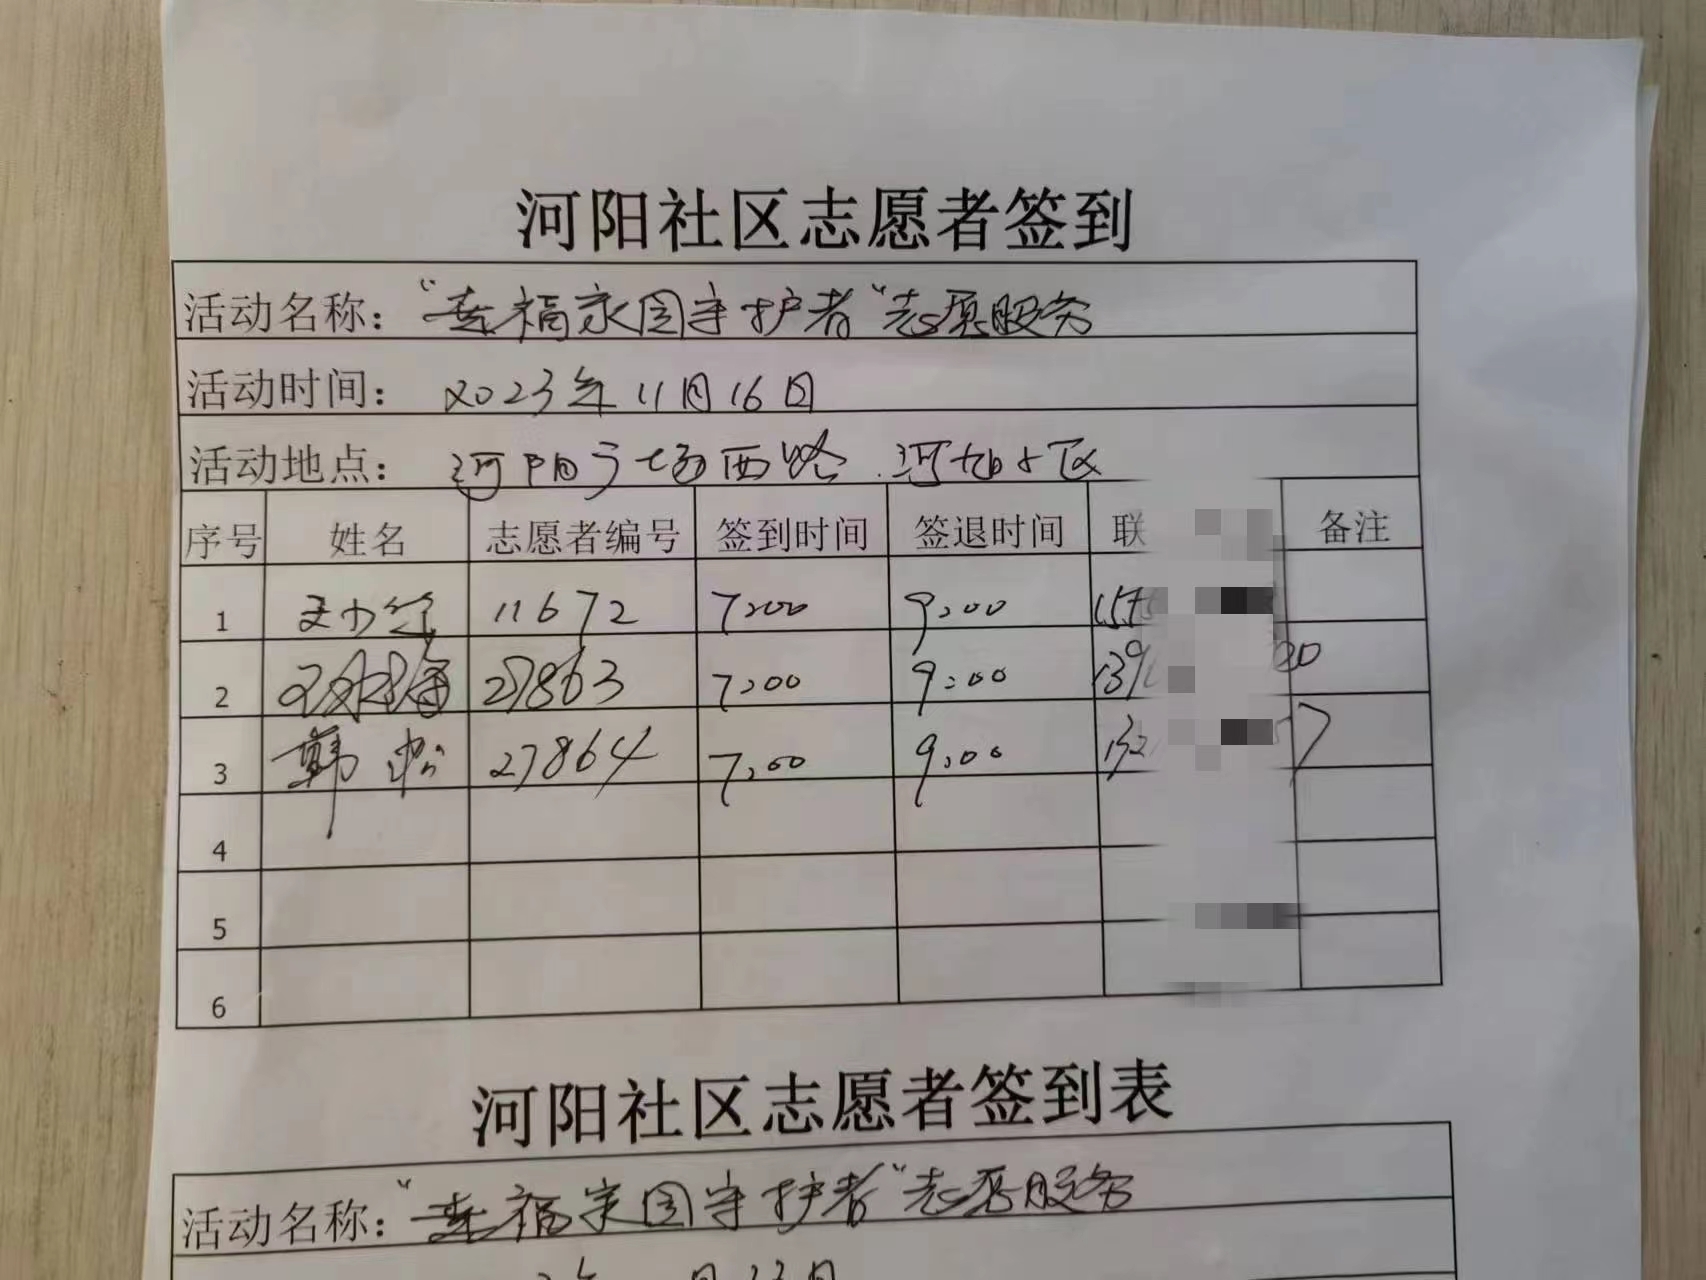 河阳社区志愿者签到
活动名称："幸福家园守护者"志愿服务
活动时间：2023年11月16日
活动地点：河阳广场西路
序号 姓名 志愿者编号 签到时间 签退时间 联 备注
1 11672 7:00 9:00
2 27863 7:00 9:00 139
3 韩松 27864 7:00 9:00 132 7
4
5
6
河阳社区志愿者签到表
活动名称："幸福家园守护者"志愿服务